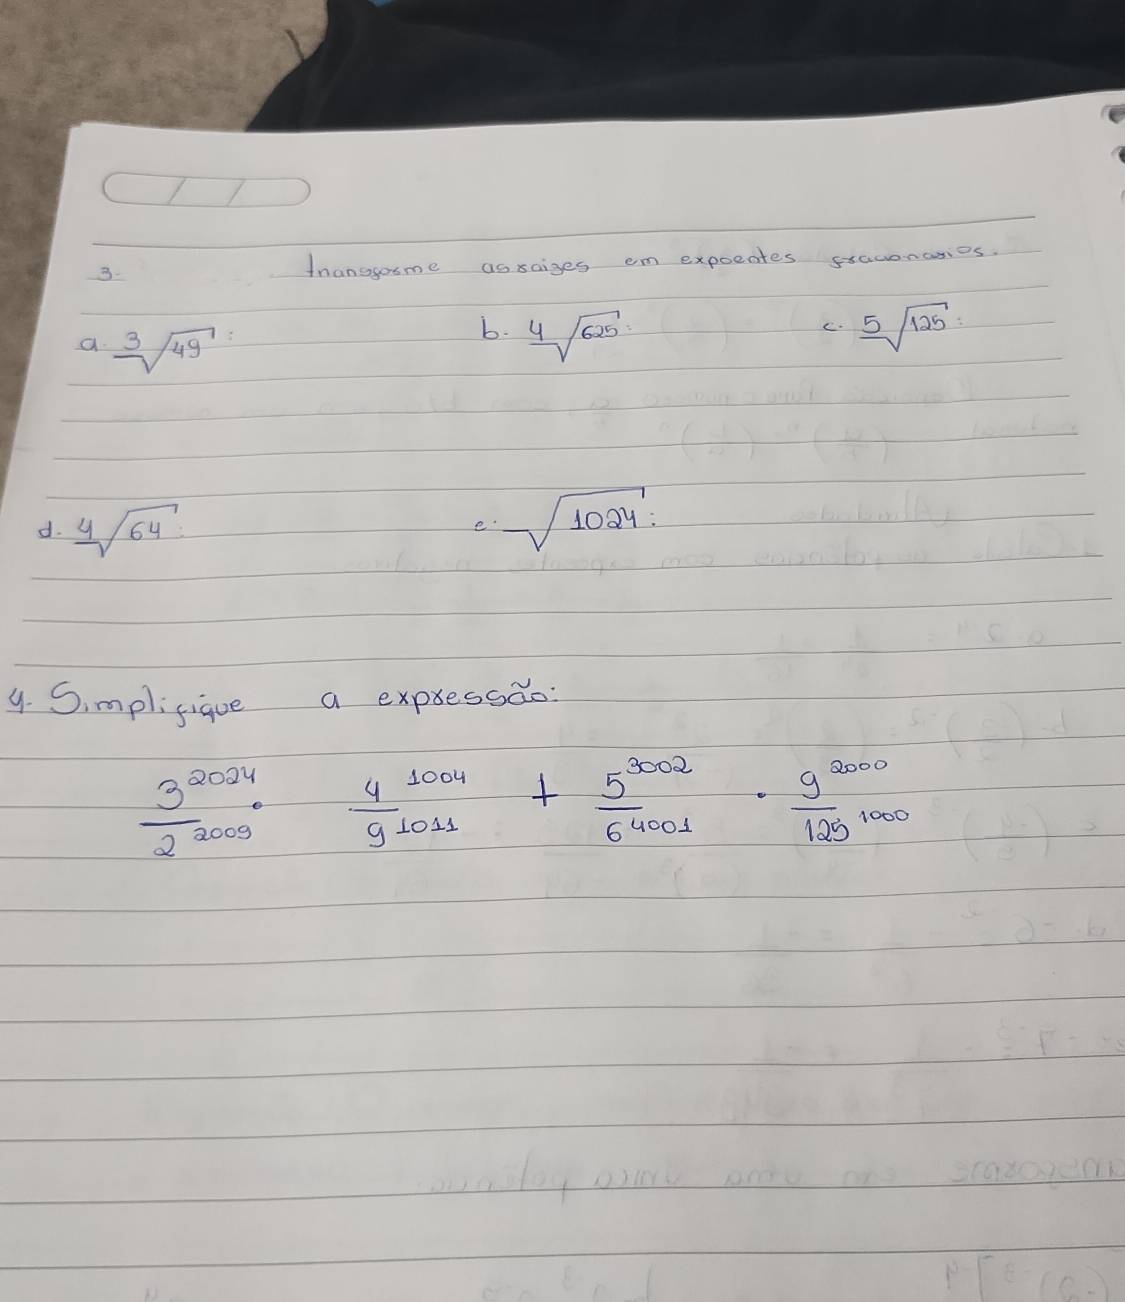 3. transforme as raizes em expoentes fracionarios.
a. ³√49: b. ⁴√625: c. ⁵√125:
d. ⁴√64: e. √1024:
4. Simplifique a expressão:
3^2024/2^2009 . 4^1004/9^1011 + 5^3002/6^4001 . 9^2000/125^1000